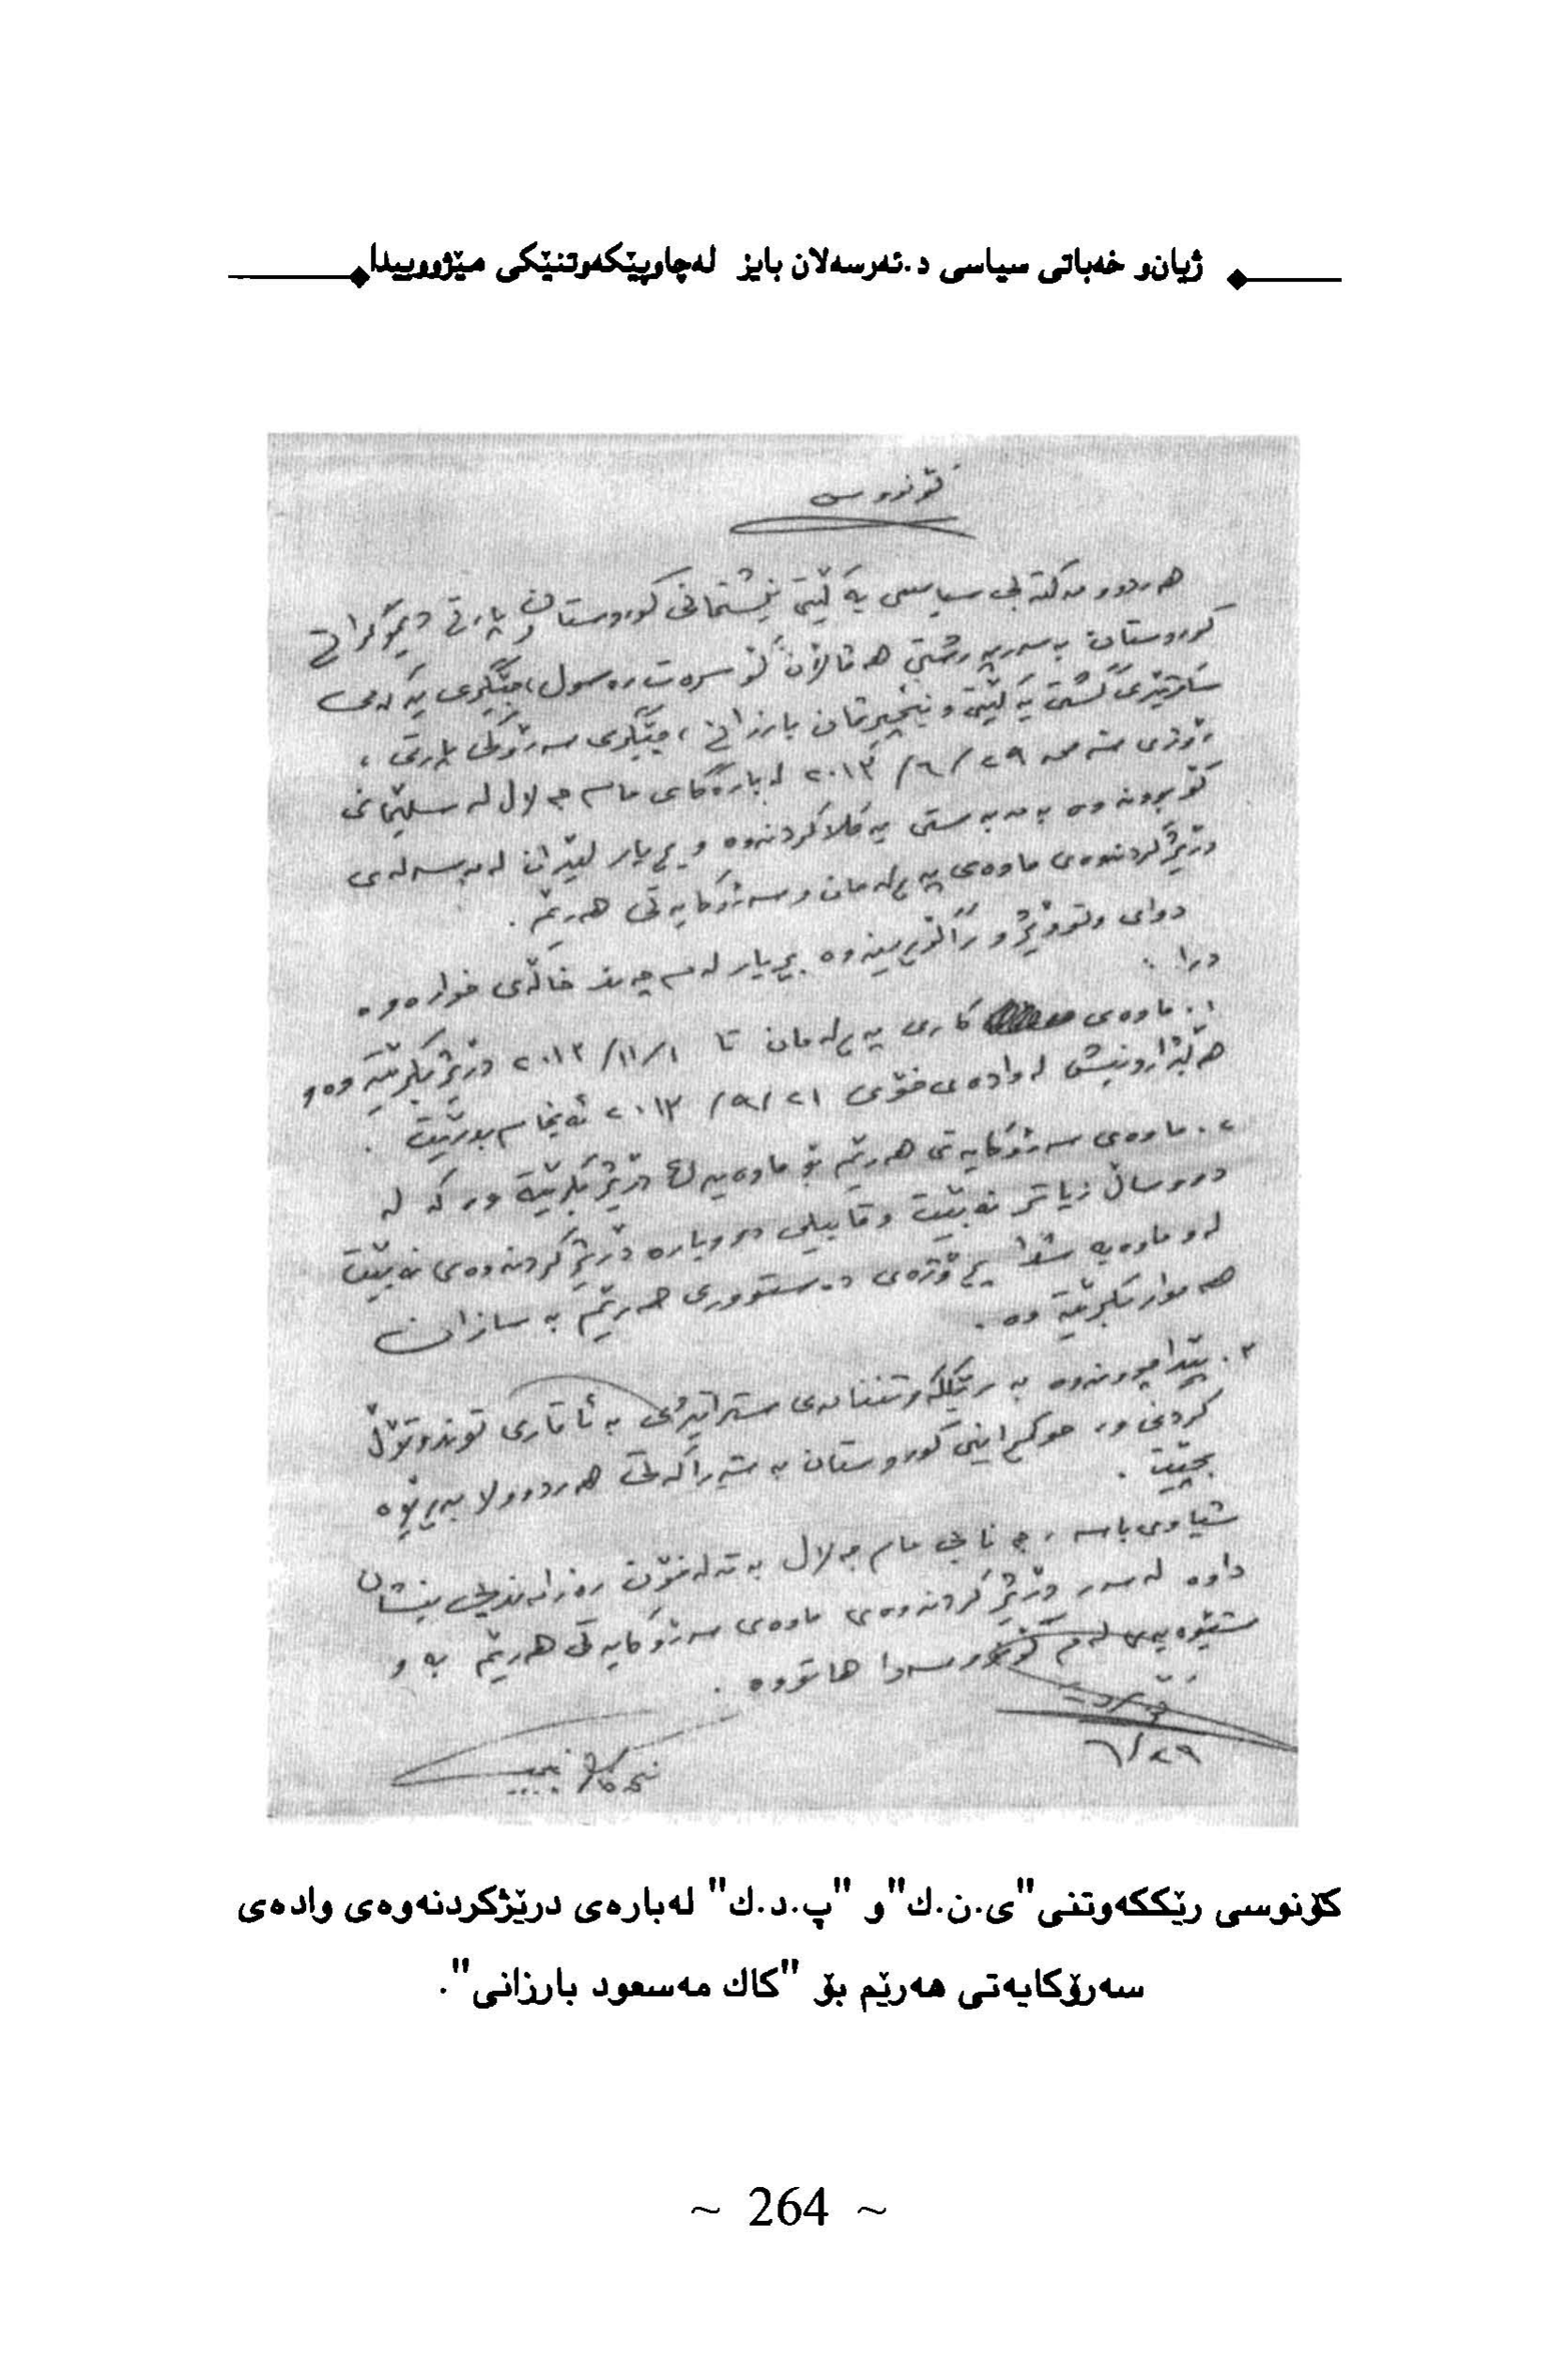 ژیان‌و خەباتی سیاسی د.ئەرسەلان بایز لەچاوپێکەوتنێکی مێژووییدا
کۆنووس
هەردوو مەکتەبی سیاسی یەکێتی نیشتمانی کوردستان و پارتی دیموکراتی
کوردستان بەسەرپەرشتی هەڤاڵان کۆسرەت رەسول، جێگری یەکەمی
سکرتێری گشتی یەکێتی و نێچیرڤان بارزانی، جێگری سەرۆکی پارتی،
رۆژی شەممە ٢٩/٦/٢٠١٣ لە بارەگای مام جەلال لە سلێمانی
کۆبونەوە بە مەبەستی یەکلاکردنەوە و بڕیار لێدان لە مەسەلەی
درێژکردنەوەی ماوەی پەڕلەمان و سەرۆکایەتی هەرێم.
دوای وتووێژ و ڕاگۆڕینەوە بڕیار لەم چەند خاڵەی خوارەوە
درا:
١. ماوەی کاری پەڕلەمان تا ١/١١/٢٠١٣ درێژبکرێتەوە و
هەڵبژاردنیش لەوادەی خۆی ٢١/٩/٢٠١٣ ئەنجام بدرێت.
٢. ماوەی سەرۆکایەتی هەرێم بۆ ماوەیەک درێژبکرێتەوە کە لە
دوو ساڵ زیاتر نەبێت و قابیلی دووبارە درێژکردنەوەی نەبێت
لەو ماوەیەشدا پڕۆژەی دەستووری هەرێم بە سازان
هەموار بکرێتەوە.
٣. پێداچوونەوە بە رێککەوتننامەی ستراتیژی بە ئاقاری توندوتۆڵ
کردنی و حوکمڕانی کوردستان بە شەراکەتی هەردوولا بەڕێوە
بچێت.
شیاوی باسە، جەنابی مام جەلال بە تەلەفۆن رەزامەندیی نیشان
داوە لەسەر درێژکردنەوەی ماوەی سەرۆکایەتی هەرێم بەو
شێوەیەی لەم کۆنووسەدا هاتووە.
٢٩/٦
کۆنوسی رێککەوتنی"ی.ن.ك"و "پ.د.ك" لەبارەی درێژکردنەوەی وادەی
سەرۆکایەتی هەرێم بۆ "کاك مەسعود بارزانی".
~ 264 ~